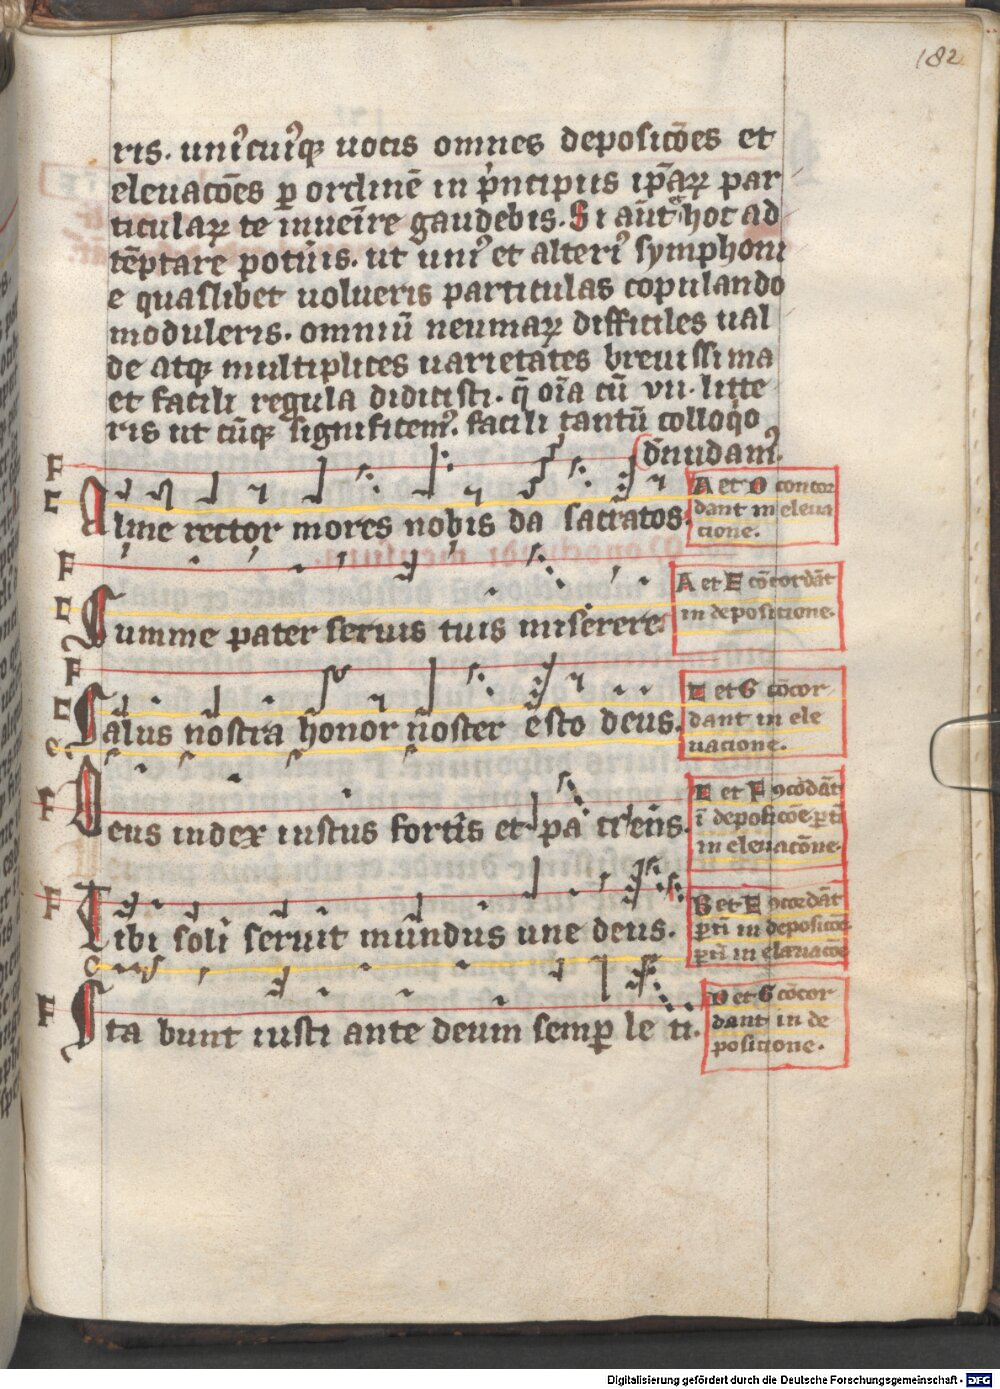 182
ris. uniꝰcuiꝰqꝫ uocis omnes deposicōes et
eleuacōes ꝑ ordinē in pͥncipiis ip̄aꝝ par
ticulaꝝ te inueīre gaudebis. Si aūt hoc ad
tēptare potūis. ut uniꝰ et alteriꝰ symphoni
e quaslibet uolueris particulas copulando
moduleris. omniū neumaꝝ difficiles ual
de atqꝫ multiplices uarietates breuissima
et facili regula didicisti. q̄ oīa cū vii. litte
ris ut cūqꝫ significemꝰ. facili tantū colloqͥo
dn̄udamꝰ.
F
C
Alme rector mores nobis da sacratos.
A et D concor
dant in eleua
cione.
F
C
Summe pater seruis tuis miserere.
A et E cōcordāt
in deposicione.
F
C
Salus nostra honor noster esto deus.
et G cōcor
dant in ele
uacione.
C
F
Deus iudex iustus fortis et pa ciens.
et F ꝯcōdāt
ī deposicōe ꝑtī
in eleuacōne.
F
Tibi soli seruit mundus une deus.
B et E ꝯcordāt
ꝑtī in deposicōe
ꝑtī in eleuacōe
C
F
Sta bunt iusti ante deum semꝑ le ti.
D et G cōcor
dant in de
posicione.
Digitalisierung gefördert durch die Deutsche Forschungsgemeinschaft - DFG